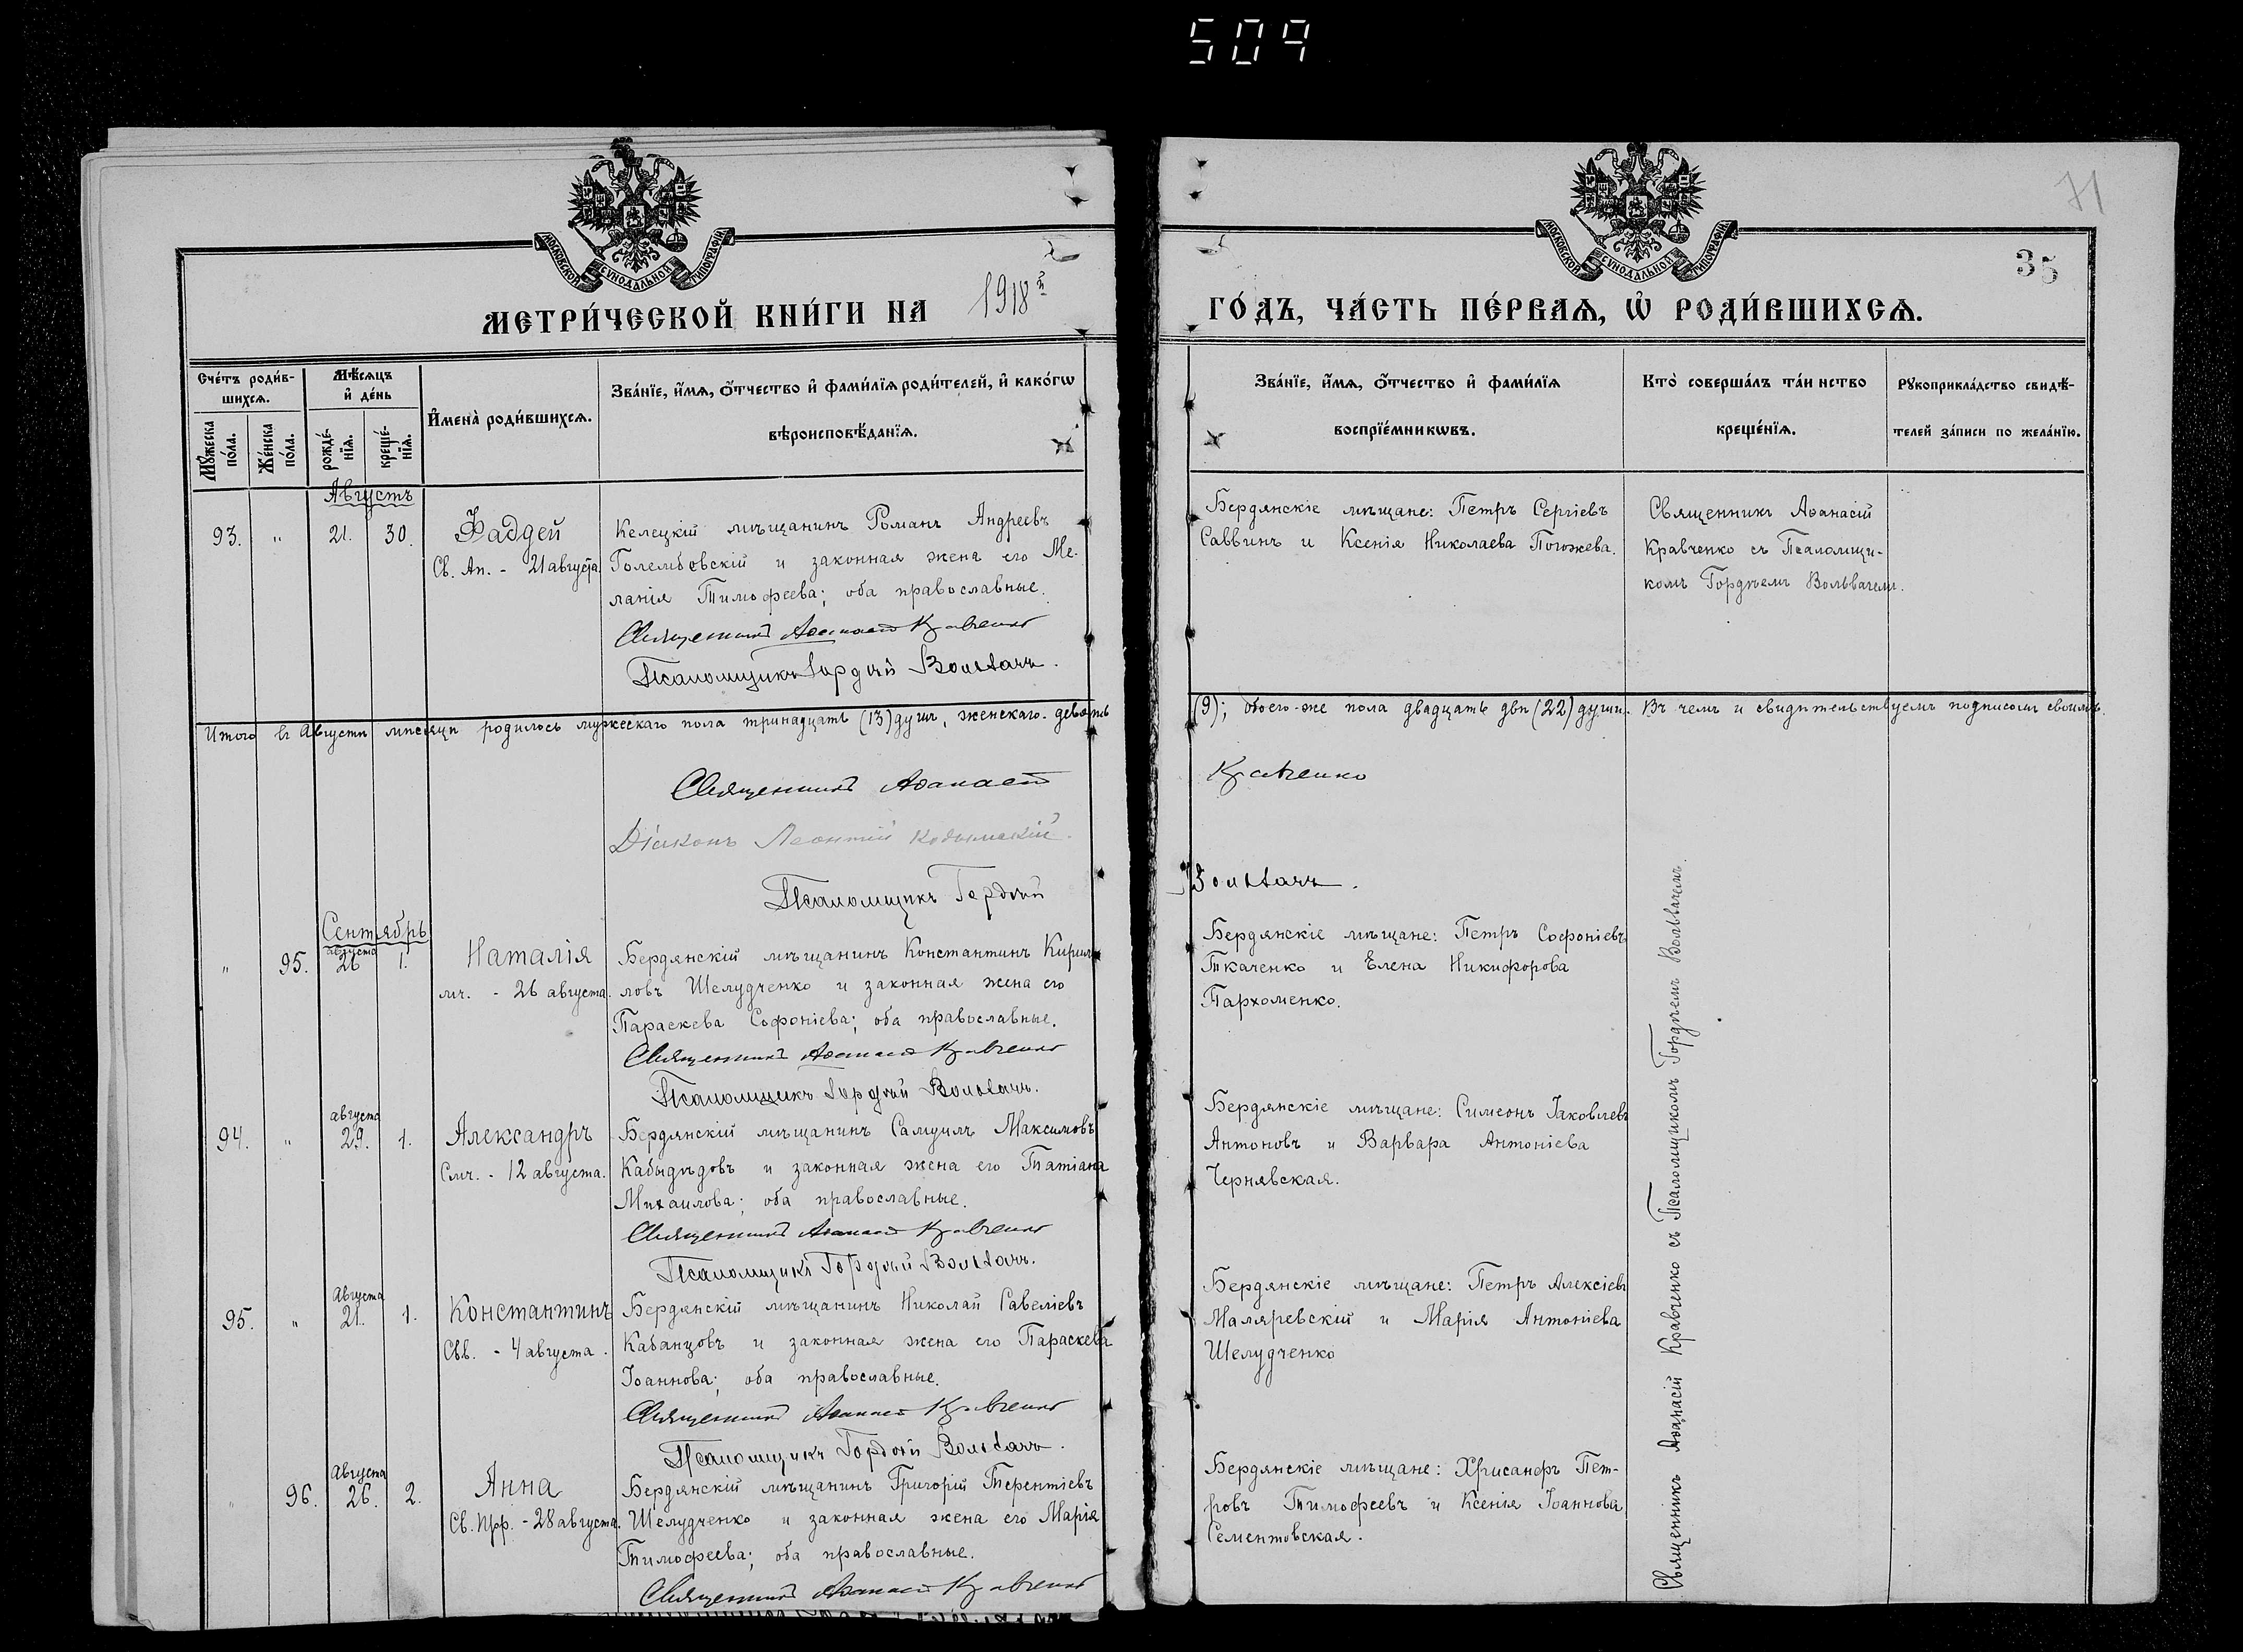 509
71
35
МОСКОВСКОЙ СѴНОДАЛЬНОЙ ТИПОГРАФІИ
МОСКОВСКОЙ СѴНОДАЛЬНОЙ ТИПОГРАФІИ
МЕТРИ́ЧЕСКОЙ КНИ́ГИ НА 1918 ГО́ДЪ, ЧА́СТЬ ПЕ́РВАѦ, Ѽ РОДИ́ВШИХСѦ.
Сче́тъ роди́вшихсѧ.
Мꙋ́жеска по́ла.
Же́нска по́ла.
Мѣ́сяцъ и҆ де́нь
рожде́нїѧ.
креще́нїѧ.
И҆мена̀ роди́вшихсѧ.
Зва́нїе, и҆́мѧ, ѻ҆́тчество и҆ фами́лїѧ роди́телей, и҆ како́гѡ
вѣроисповѣ́данїѧ.
Зва́нїе, и҆́мѧ, ѻ҆́тчество и҆ фами́лїѧ
воспрїе́мникѡвъ.
Кто̀ соверша́лъ та́инство
креще́нїѧ.
Рꙋкоприкла́дство свидѣ́-
телей за́писи по жела́нїю.
Августъ
93. " 21. 30. Фаддей
Св. Ап. - 21 августа.
Келецкій мѣщанинъ Романъ Андреевъ
Голембовскій и законная жена его Ме-
ланія Тимофеева; оба православные.
Священникъ Аѳанасій Кравченко
Псаломщикъ Гордѣй Вольвачъ.
Бердянскіе мѣщане: Петръ Сергіевъ
Саввинъ и Ксенія Николаева Погожева.
Священникъ Аѳанасій
Кравченко съ Псаломщи-
комъ Гордѣемъ Вольвачемъ.
Итого въ Августѣ мѣсяцѣ родилось мужескаго пола тринадцать (13) душъ, женскаго - девять (9); обоего-же пола двадцать двѣ (22) души. Въ чемъ и свидѣтельствуемъ подписомъ своимъ.
Священникъ Аѳанасій Кравченко
Діаконъ Леонтій
Псаломщикъ Гордѣй Вольвачъ.
Сентябрь
" 95. августа 26 1. Наталія
мч. - 26 августа.
Бердянскій мѣщанинъ Константинъ Кирил-
ловъ Шелудченко и законная жена его
Параскева Софоніева; оба православные.
Священникъ Аѳанасій Кравченко
Псаломщикъ Гордѣй Вольвачъ.
Бердянскіе мѣщане: Петръ Софоніевъ
Ткаченко и Елена Никифорова
Пархоменко.
94. " августа 29. 1. Александръ
Смч. - 12 августа.
Бердянскій мѣщанинъ Самуилъ Максимовъ
Кабыдѣдовъ и законная жена его Татіана
Михаилова; оба православные.
Священникъ Аѳанасій Кравченко
Псаломщикъ Гордѣй Вольвачъ.
Бердянскіе мѣщане: Симеонъ Іаковлевъ
Антоновъ и Варвара Антоніева
Чернявская.
95. " Августа 21. 1. Константинъ
Свв. - 4 августа.
Бердянскій мѣщанинъ Николай Савеліевъ
Кабанцовъ и законная жена его Параскева
Іоаннова; оба православные.
Священникъ Аѳанасій Кравченко
Псаломщикъ Гордѣй Вольвачъ.
Бердянскіе мѣщане: Петръ Алексіевъ
Маляревскій и Марія Антоніева
Шелудченко
" 96. Августа 26. 2. Анна
Св. Прр. - 28 августа.
Бердянскій мѣщанинъ Григорій Терентіевъ
Шелудченко и законная жена его Марія
Тимофеева; оба православные.
Священникъ Аѳанасій Кравченко
Бердянскіе мѣщане: Хрисанфъ Пет-
ровъ Тимофеевъ и Ксенія Іоаннова
Сементовская.
Священникъ Аѳанасій Кравченко съ Псаломщикомъ Гордѣемъ Вольвачемъ.